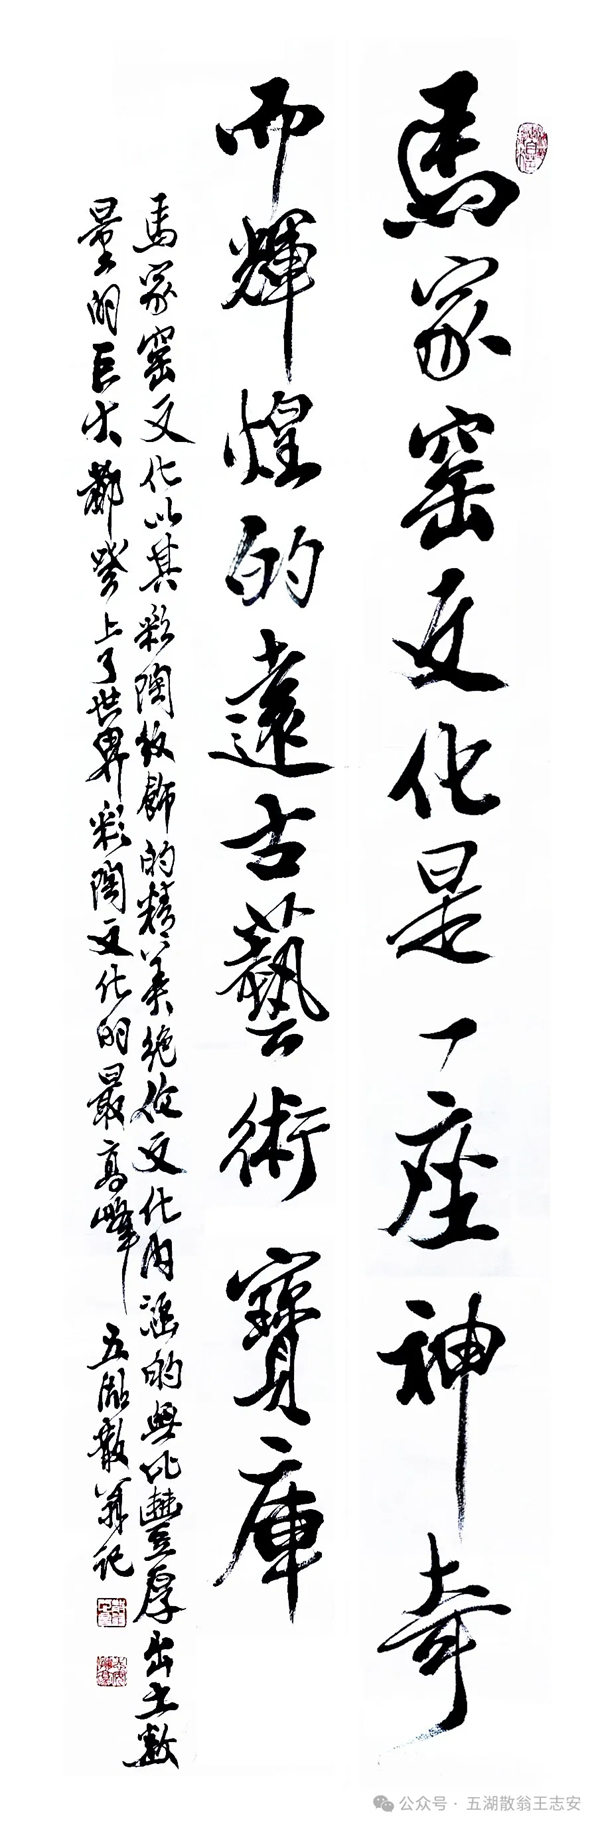 馬家窑文化是一座神奇
而輝煌的遠古藝術寶庫
馬家窑文化以其彩陶紋飾的精美絶倫文化内涵的無比豐厚出土數
量的巨大都登上了世界彩陶文化的最高峰 五湖散翁記
公众号·五湖散翁王志安